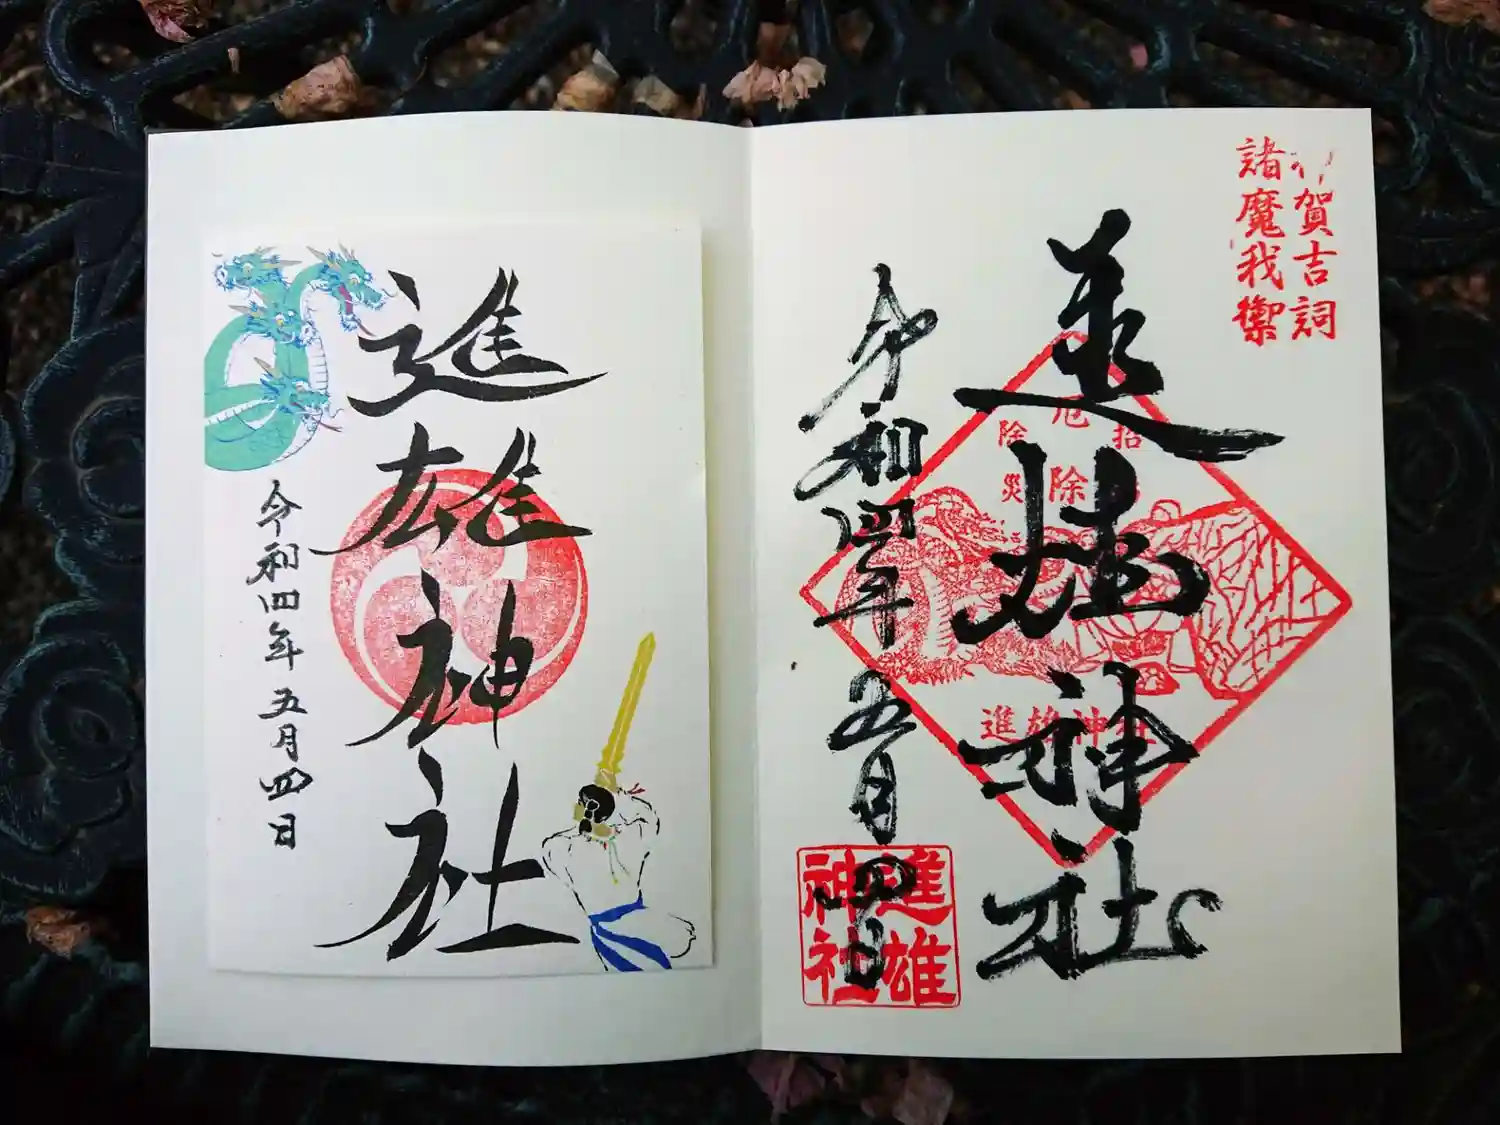 賀吉詞
諸魔我禦
進雄神社
招
厄除
除災
進雄神社
令和四年五月四日
進雄
神社
進雄神社
令和四年五月四日